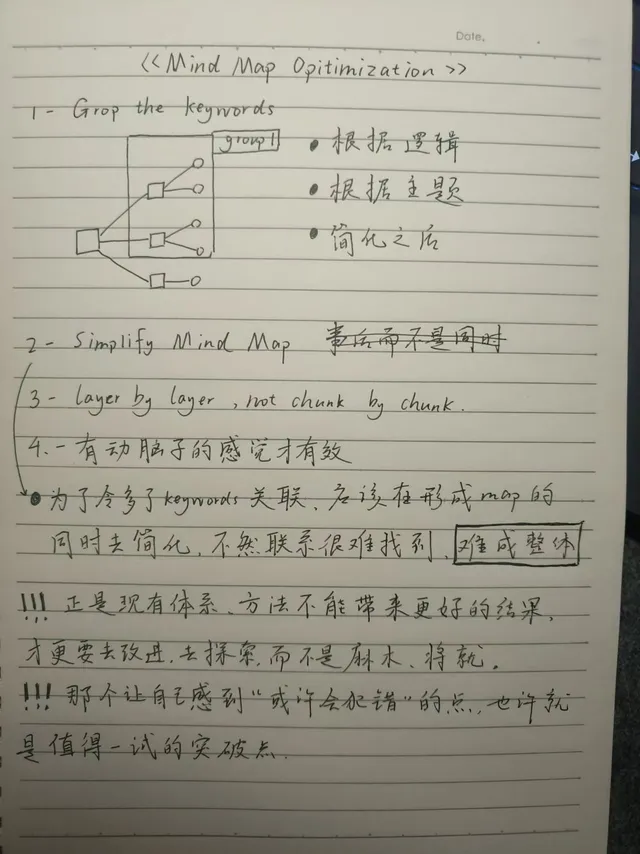 Date.
<<Mind Map Opitimization>>
1- Grop the keywords
group1
• 根据逻辑
• 根据主题
• 简化之后
2- Simplify Mind Map 事后而不是同时
3- layer by layer, not chunk by chunk.
4.- 有动脑子的感觉才有效
• 为了令多了keywords关联、应该在形成map的
同时去简化,不然联系很难找到,难成整体
!!! 正是现有体系、方法不能带来更好的结果,
才更要去改进,去探索,而不是麻木、将就。
!!! 那个让自己感到“或许会犯错”的点,也许就
是值得一试的突破点.